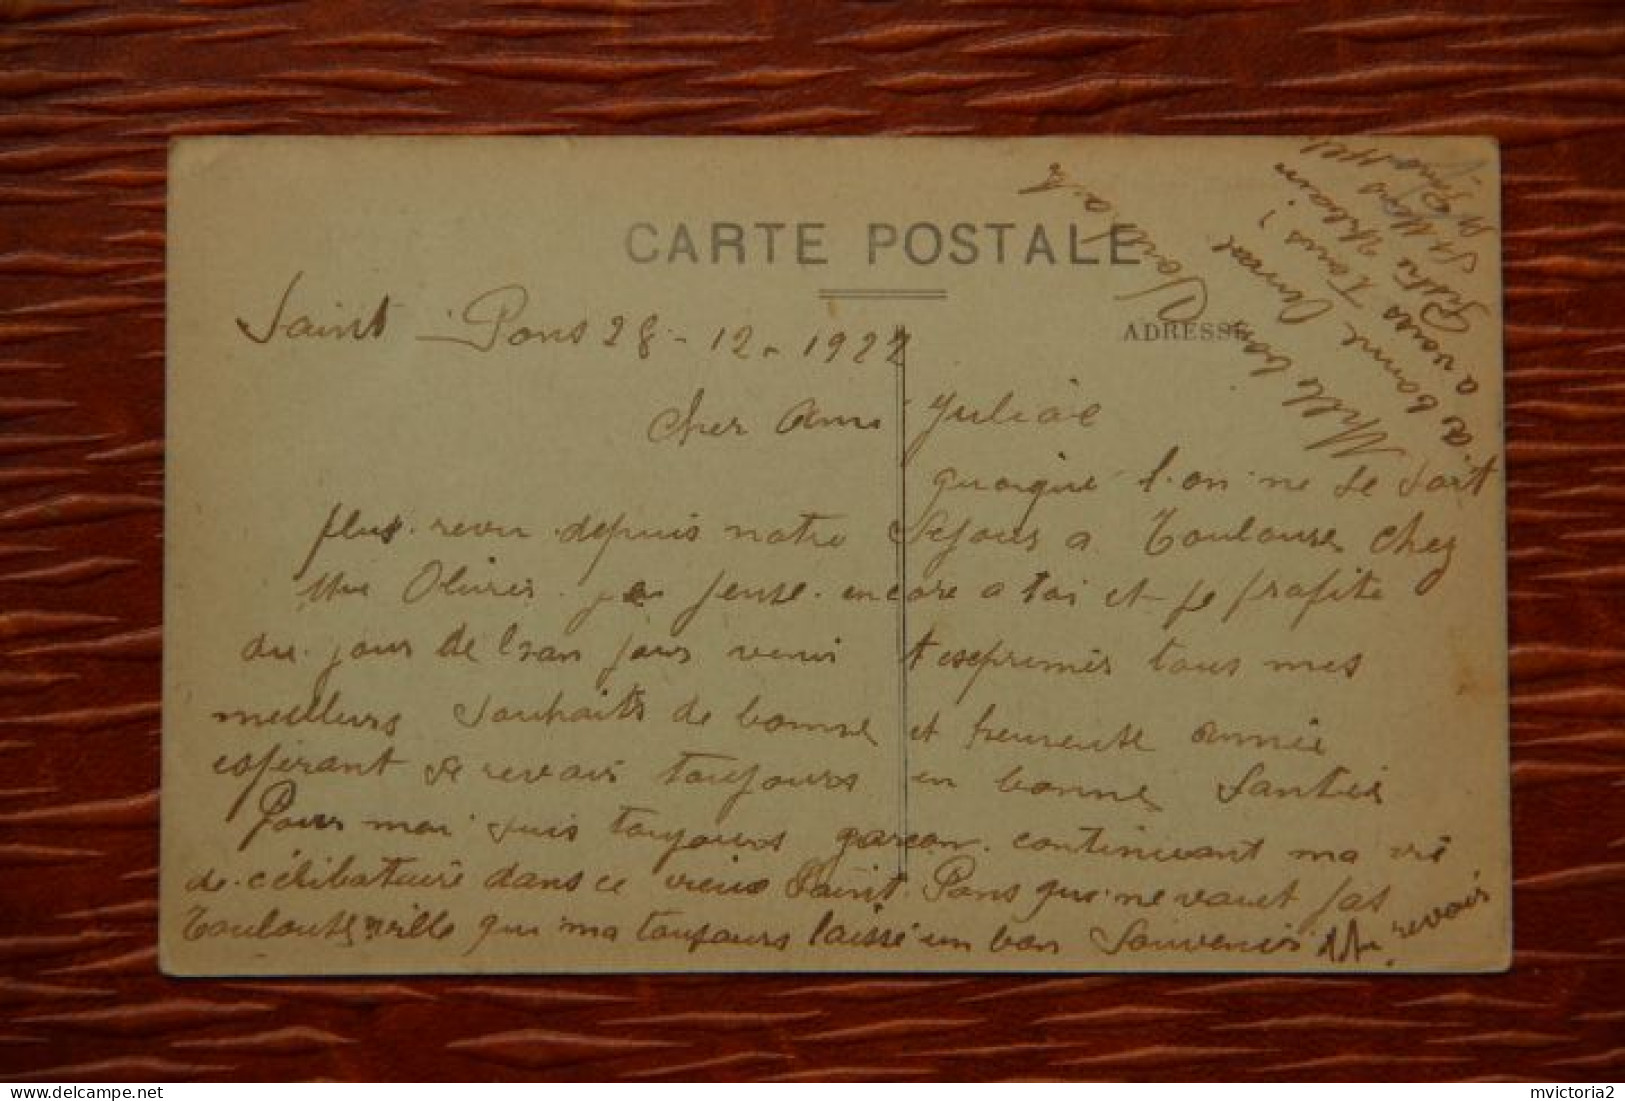 CARTE POSTALE
ADRESSE
Saint-Pons 28-12-1922
Cher Ami Juliae
quoique l'on ne se soit
plus revu depuis notre Sejour a Toulouse chez
Mme Olivier je pense encore a toi et je profite
du jour de l'an pour venir t'esprimer tous mes
meilleurs Souhaits de bonne et heureuse année
esperant se revoir toujours en bonne Santée
Pour moi suis toujours garcon continuant ma vie
de célibataire dans ce vieux Saint Pons qui ne vaut pas
Toulouse ville qui ma toujours laissé un bon Souvenir Au revoir
Mille bons
a bonne
a vous Tous !
mvictoria2